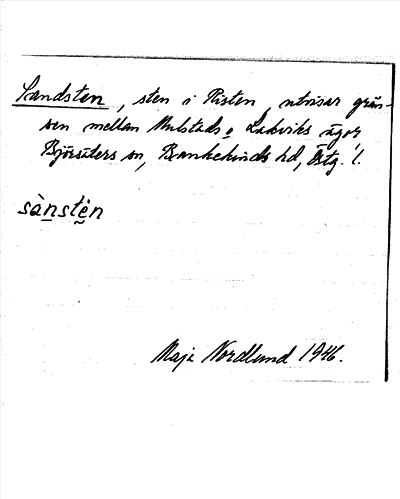 Sandsten, sten i Risten, utvisar grän-
sen mellan Mulstads o. Lakviks ägor,
Björsäters sn, Bankekinds hd, Östg. l.
sànstèn
Maja Nordlund 1946.